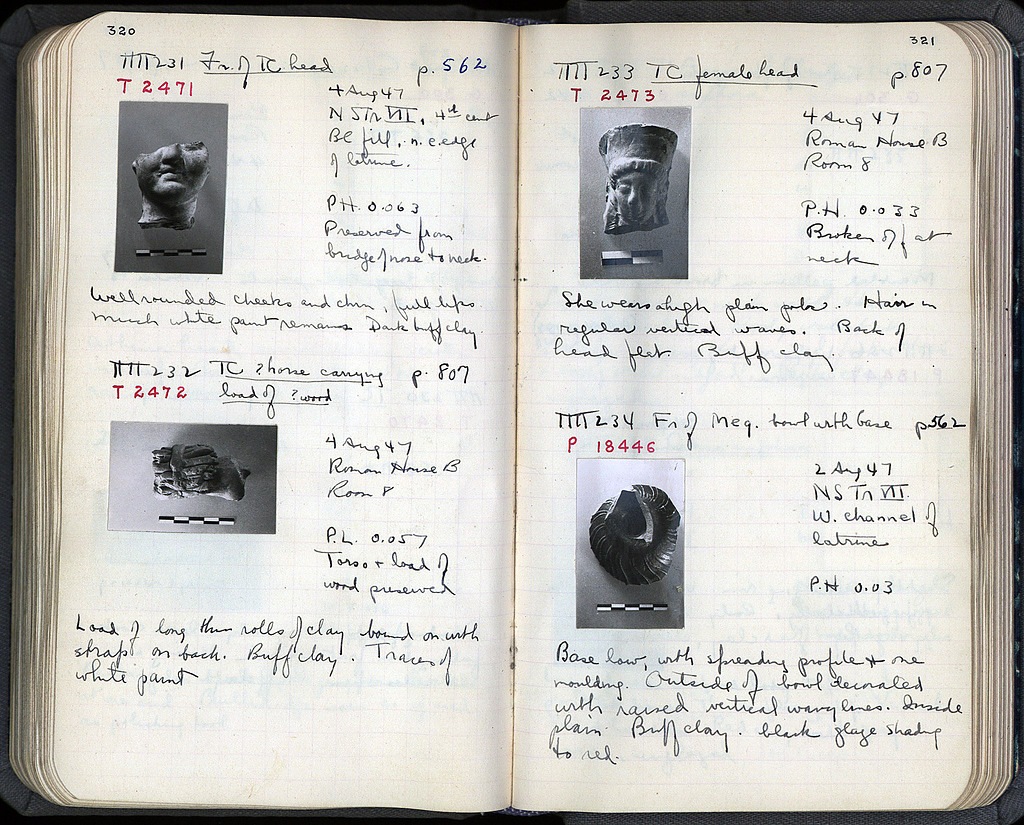 320
ΠΠ 231 Fr. of TC head p. 562
T 2471
4 Aug 47
NSTr VII, 4th cent
BC fill, n.e. edge
of latrine.
P.H. 0.063
Preserved from
bridge of nose to neck.
Well rounded cheeks and chin, full lips.
Much white paint remains. Dark buff clay.
ΠΠ 232 TC ? horse carrying p. 807
T 2472 load of ? wood
4 Aug 47
Roman House B
Room 8
P.L. 0.057
Torso + load of
wood preserved
Load of long thin rolls of clay bound on with
strap on back. Buff clay. Traces of
white paint
321
ΠΠ 233 TC female head p. 807
T 2473
4 Aug 47
Roman House B
Room 8
P.H. 0.033
Broken off at
neck
She wears a high plain polos. Hair in
regular vertical waves. Back of
head flat. Buff clay.
ΠΠ 234 Fr. of Meg. bowl with base p 562
P 18446
2 Aug 47
NSTr VII
W. channel of
latrine
P.H 0.03
Base low, with spreading profile + one
moulding. Outside of bowl decorated
with raised vertical wavy lines. Inside
plain. Buff clay. black glaze shading
to red.